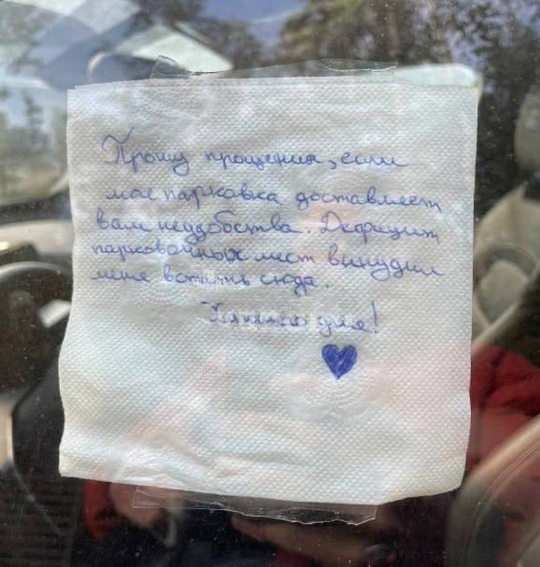 Прошу прощения, если
моя парковка доставляет
вам неудобства. Дефицит
парковочных мест вынудил
меня встать сюда.
дня!